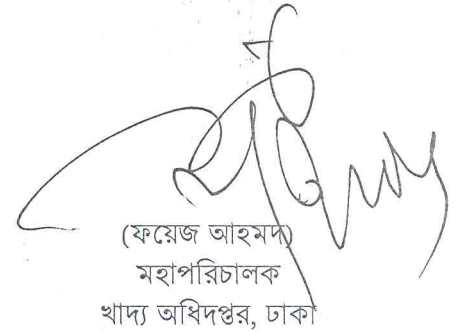 (ফয়েজ আহমদ)
মহাপরিচালক
খাদ্য অধিদপ্তর, ঢাকা